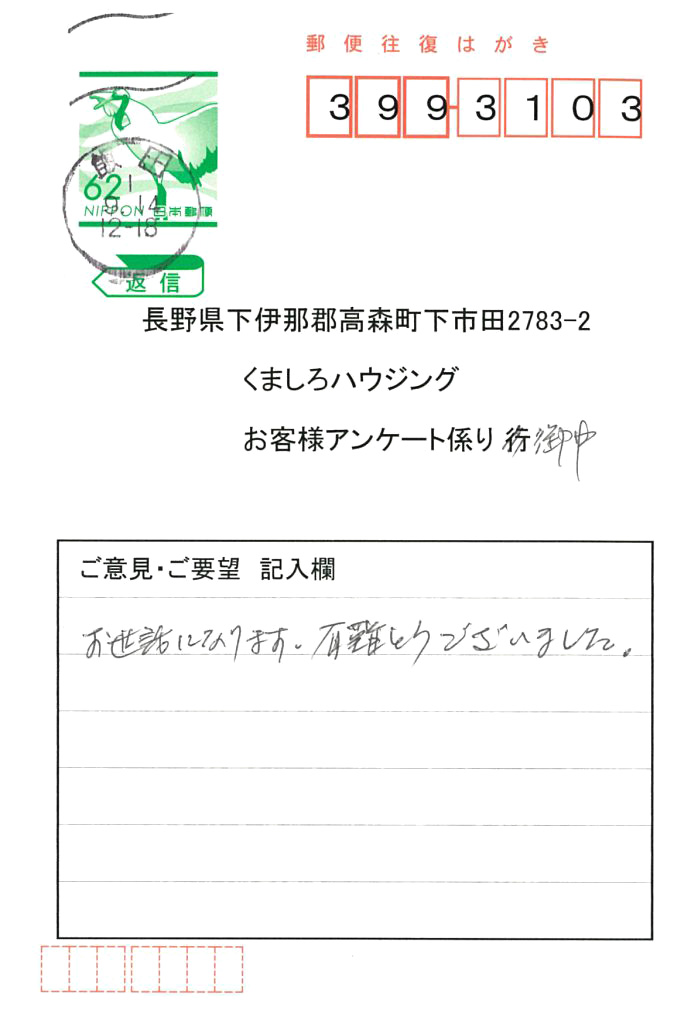 郵便往復はがき
399-3103
62
NIPPON 日本郵便
飯田
1
9.14
12-18
返信
長野県下伊那郡高森町下市田2783-2
くましろハウジング
お客様アンケート係り 行 御中
ご意見・ご要望 記入欄
お世話になります。有難とうございました。